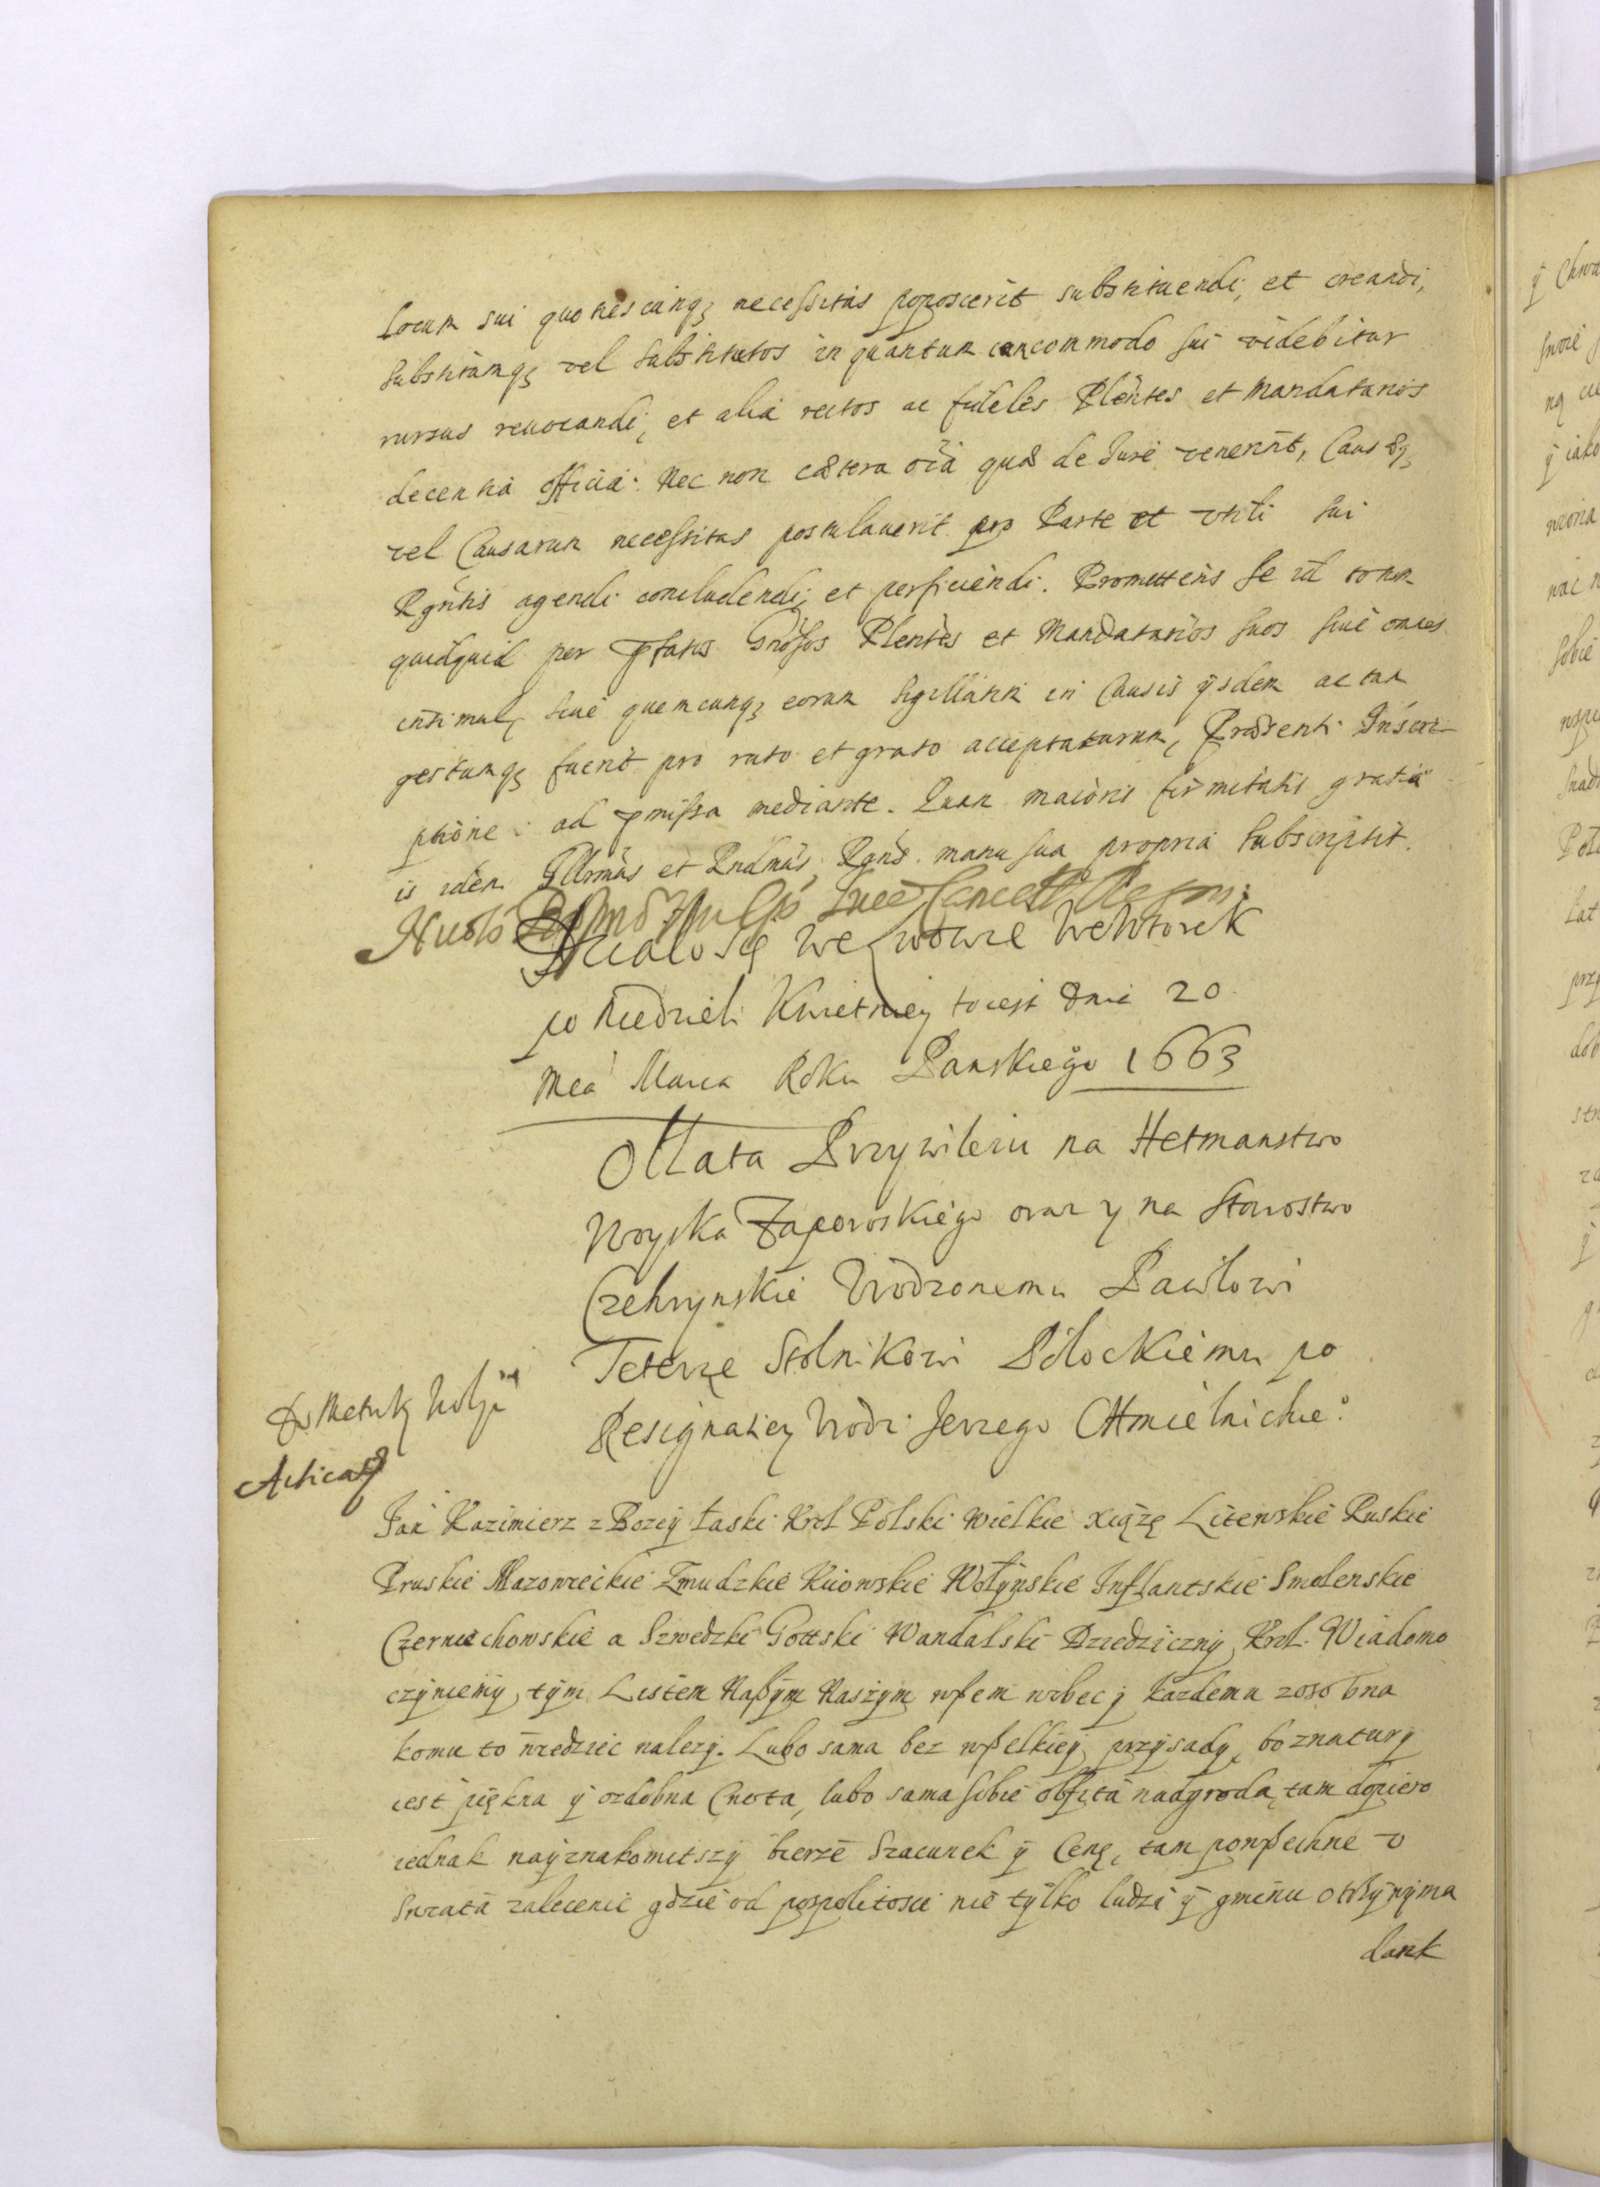 locum sui quotiescunq; necessitas poposcerit substituendi, et creandi,
substitumq; vel substitutos in quantum cum commodo sui videbitur
rursus revocandi, et alia rectos ac fideles Plentes et Mandatarios
decentia officia. Nec non cætera oia quæ de Jure venerint, Causæq;
vel Causarum necessitas postulaverit pro Parte et Utili sui
Rgntis agendi concludendi, et perficiendi. Promittens se id totum
quidquid per pfatos Gnosos Plentes et Mandatarios suos sive omnes
insimul, sive quemcunq; eorum sigillatim in Causis ijsdem actum
gestumq; fuerit pro rato et grato acceptaturum, Præsenti Inscri-
ptione ad pmissa mediante. Quam maioris firmitatis gratia
is idem Illrmus et Rndmus Rgns manu sua propria subscripsit.
Działo się we Lwowie we Wtorek
po Niedzieli Kwietniey to iest dnia 20
Mca Marca Roku Panskiego 1663
Oblata Przywileiu na Hetmanstwo
Woyska Zaporoskiego oraz y na Starostwo
Czehrynskie Urodzonemu Pawłowi
Teterze Stolnikowi Połockiemu po
Resignatiey Urodz. Jerzego Chmielnickie°
Jan Kazimierz z Bozey Łaski Krol Polski Wielkie Xiązę Litewskie Ruskie
Pruskie Mazowieckie Zmudzkie Kiiowskie Wołynskie Inflantskie Smolenskie
Czerniechowskie a Szwedzki Gottski Wandalski Dziedziczny Krol. Wiadomo
czyniemy tym Listem Naszym Naszym wszem wobec y kazdemu zosobna
komu to wiedziec nalezy. Lubo sama bez wszelkiey przysady, bo z natury
iest piękna y ozdobna Cnota, lubo sama sobie obfita nadgroda, tam dopiero
iednak nayznakomitszy bierze Szacunek y Cenę, tam powszechne v
Swiata zalecenie gdzie od pospolitosci nie tylko ludzi y gminu otrzymyma
dank